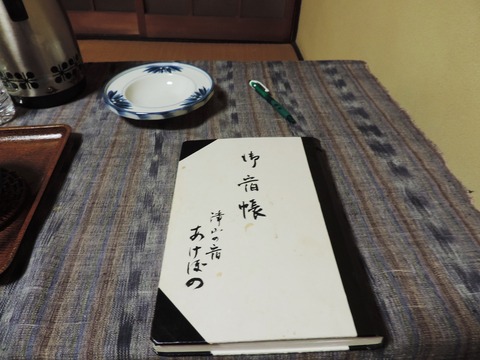 御宿帳
津山の宿
あけぼの